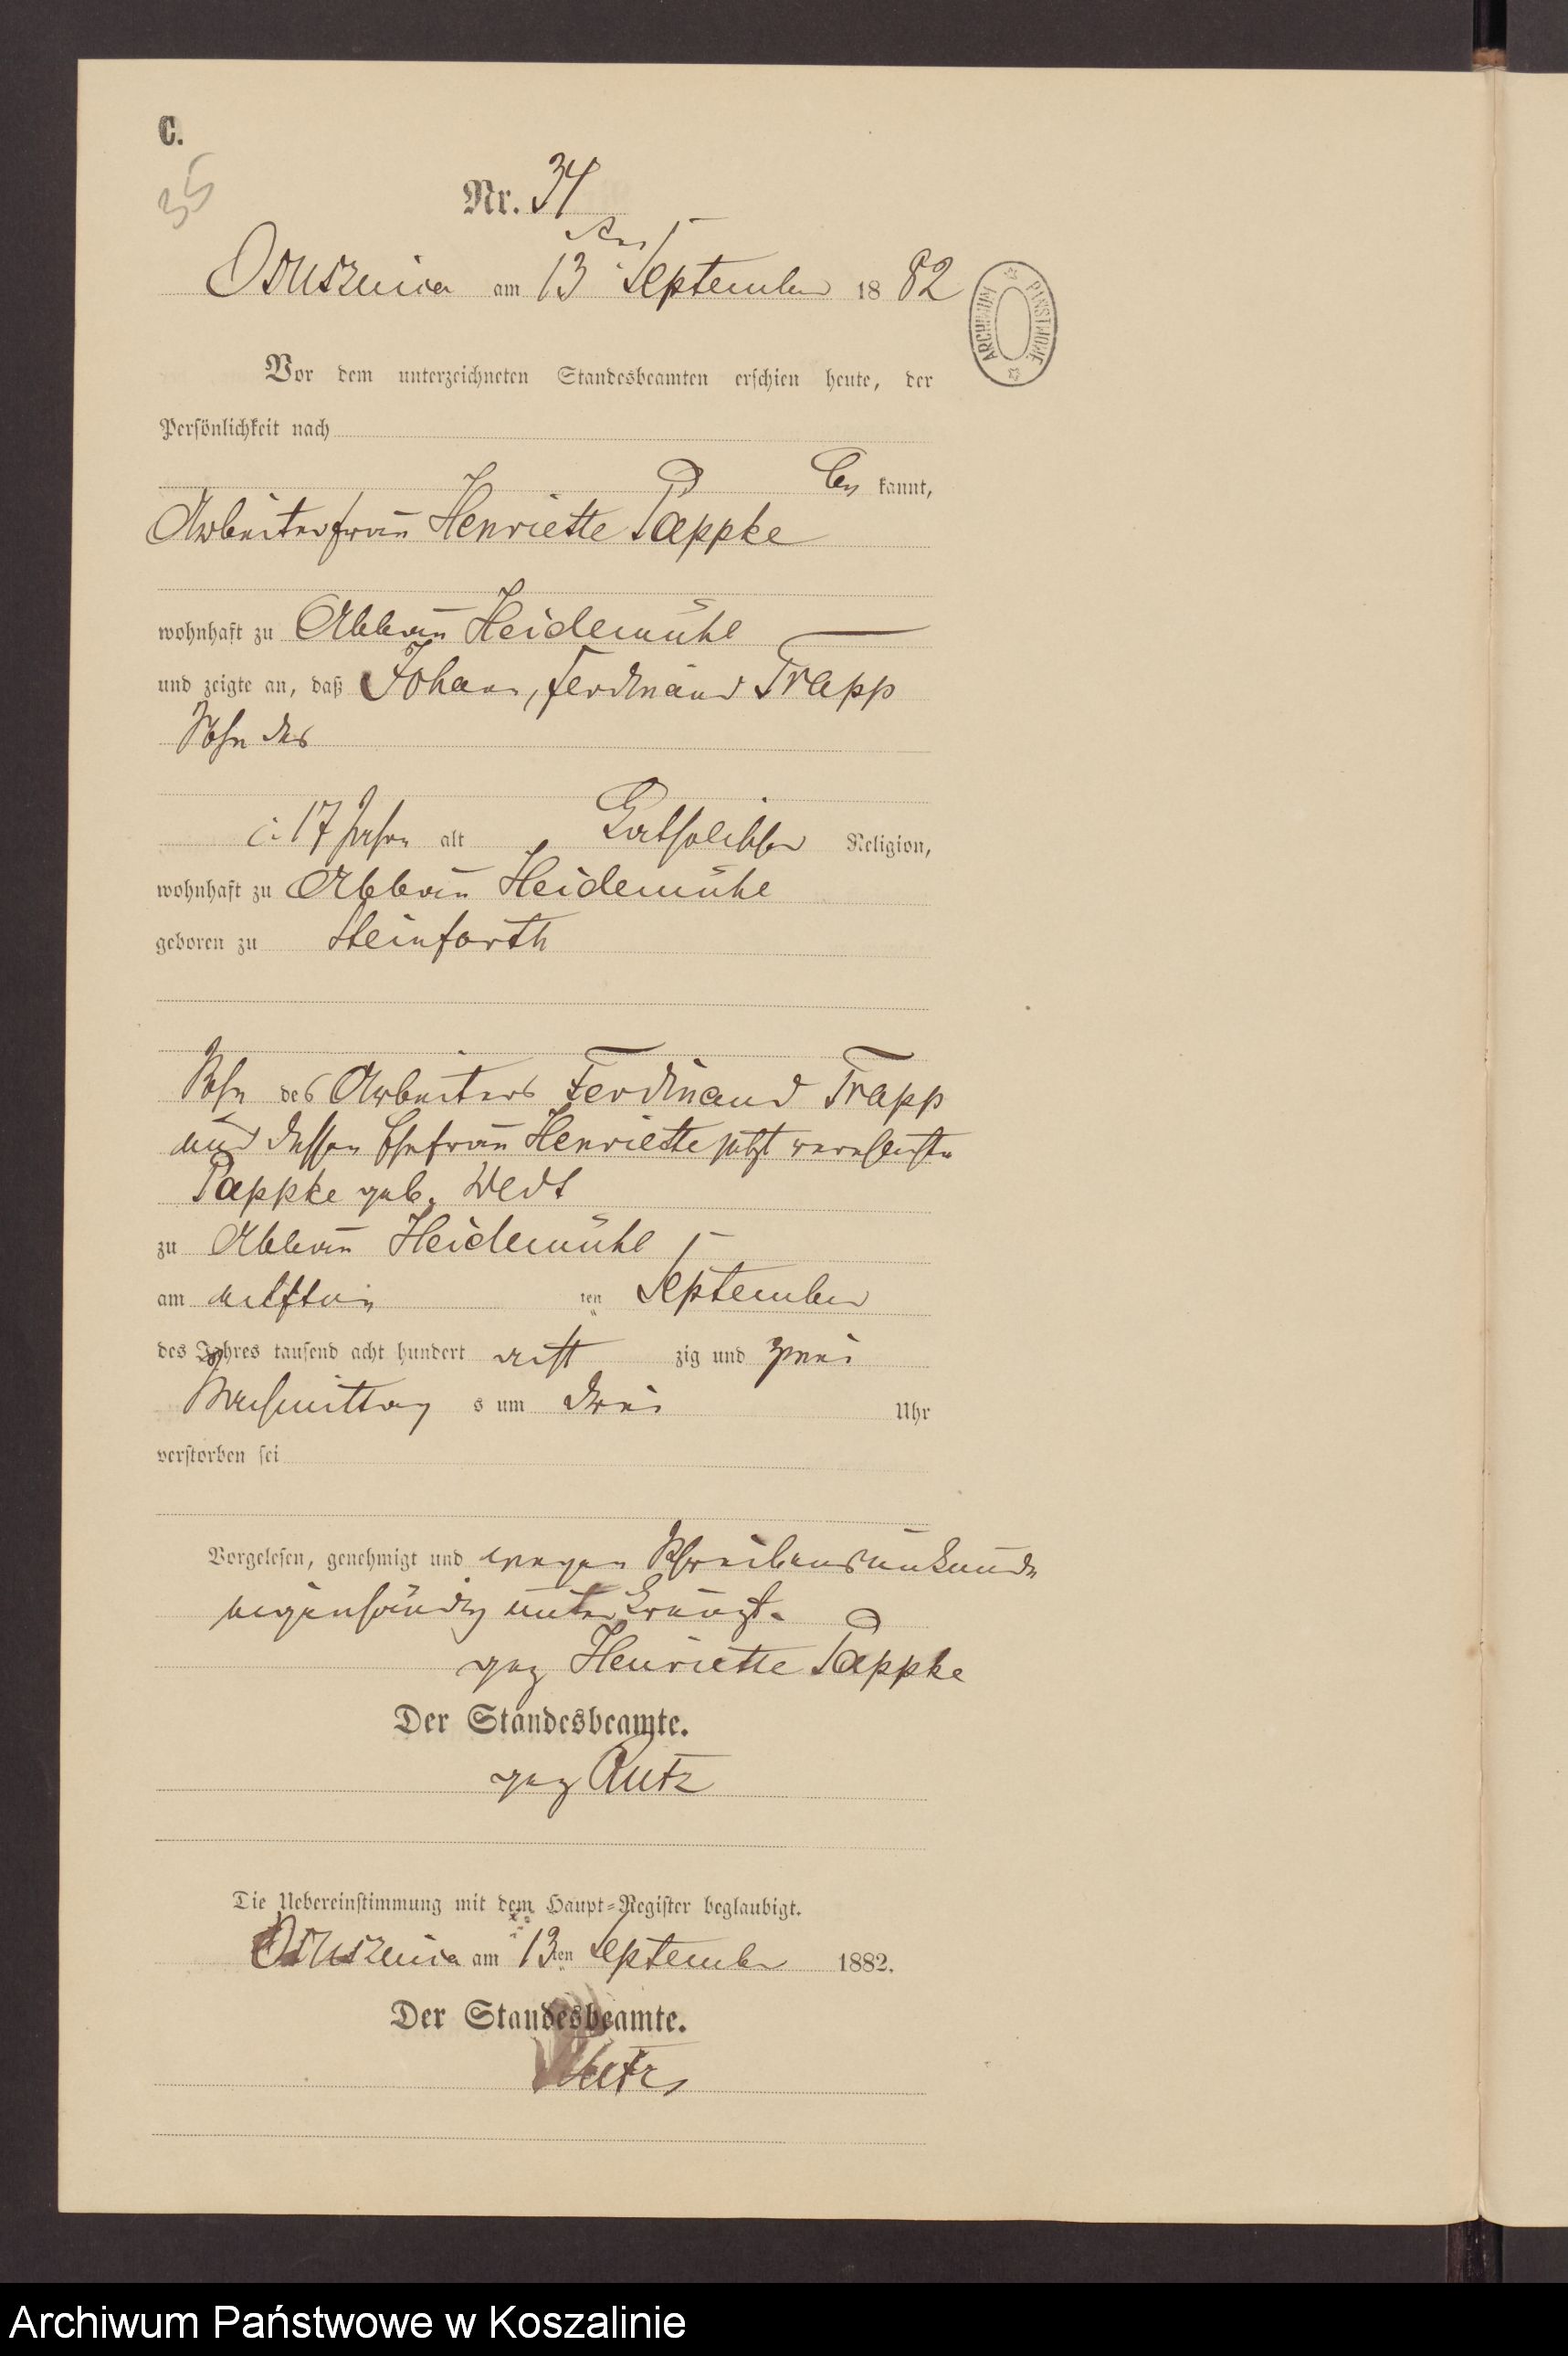 C.
35
Nr. 34
Osusznica am 13 ten September 18 82
ARCHIWUM PAŃSTWOWE
Vor dem unterzeichneten Standesbeamten erschien heute, der
Persönlichkeit nach
be kannt,
Arbeiterfrau Henriette Pappke
wohnhaft zu Abbau Heidemühl
und zeigte an, daß Johann, Ferdinand Trapp
Sohn des
17 Jahre alt Katholischer Religion,
wohnhaft zu Abbau Heidemühl
geboren zu Steinforth
Sohn des Arbeiters Ferdinand Trapp
und dessen Ehefrau Henriette jetzt verehelichte
Pappke geb.
zu Abbau Heidemühl
am elften ten September
des Jahres tausend acht hundert acht zig und zwei
Nachmittag s um drei Uhr
verstorben sei
Vorgelesen, genehmigt und wegen Schreibensunkunde
eigenhändig unterkreuzt.
gez Henriette Pappke
Der Standesbeamte.
gez Rutz
Die Uebereinstimmung mit dem Haupt-Register beglaubigt.
Osusznica am 13 ten September 1882.
Der Standesbeamte.
Rutz
Archiwum Państwowe w Koszalinie